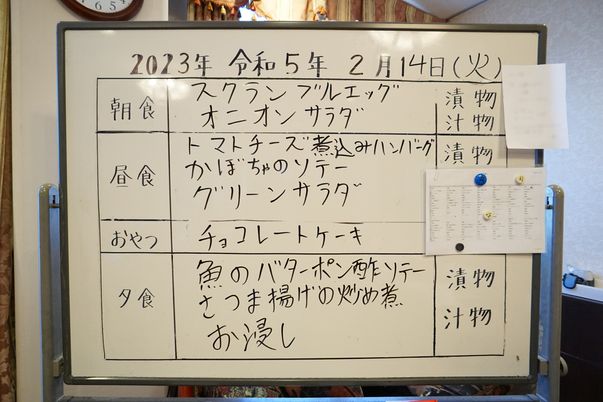 2023年 令和5年 2月14日(火)
朝食
スクランブルエッグ
オニオンサラダ
漬物
汁物
昼食
トマトチーズ煮込みハンバーグ
かぼちゃのソテー
グリーンサラダ
漬物
おやつ
チョコレートケーキ
夕食
魚のバターポン酢ソテー
さつま揚げの炒め煮
お浸し
漬物
汁物